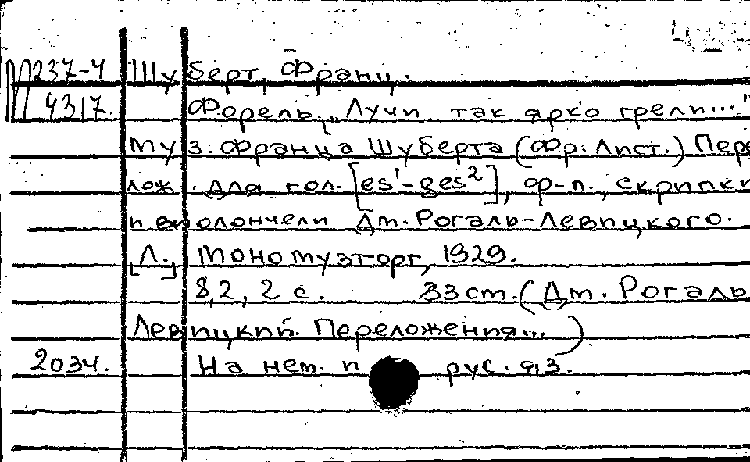 П237-4 Шуберт, Франц.
4317. Форель. „Лучи так ярко грели..."
Муз. Франца Шуберта (Фр. Лист.) Пере
лож. для гол. [es¹-ges²], ф-п., скрипки
и виолончели Дм. Рогаль-Левицкого.
[Л.] Тономузторг, 1929.
8, 2, 2 с. 33 ст. (Дм. Рогаль
Левицкий. Переложения...)
2034. На нем. и рус. яз.